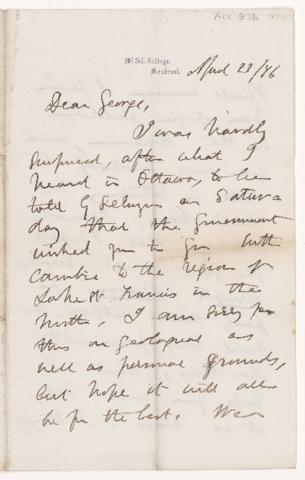 Acc 976
McGill College,
Montreal.
April 23/76
Dear George,
I was hardly
surprised, after what I
heard in Ottawa, to be
told by Selwyn on Satur
day that the Government
wished you to go with
Cambie to the region of
Lake St Francis in the
North. I am sorry for
this on geological as
well as personal grounds,
but hope it will all
be for the best. We